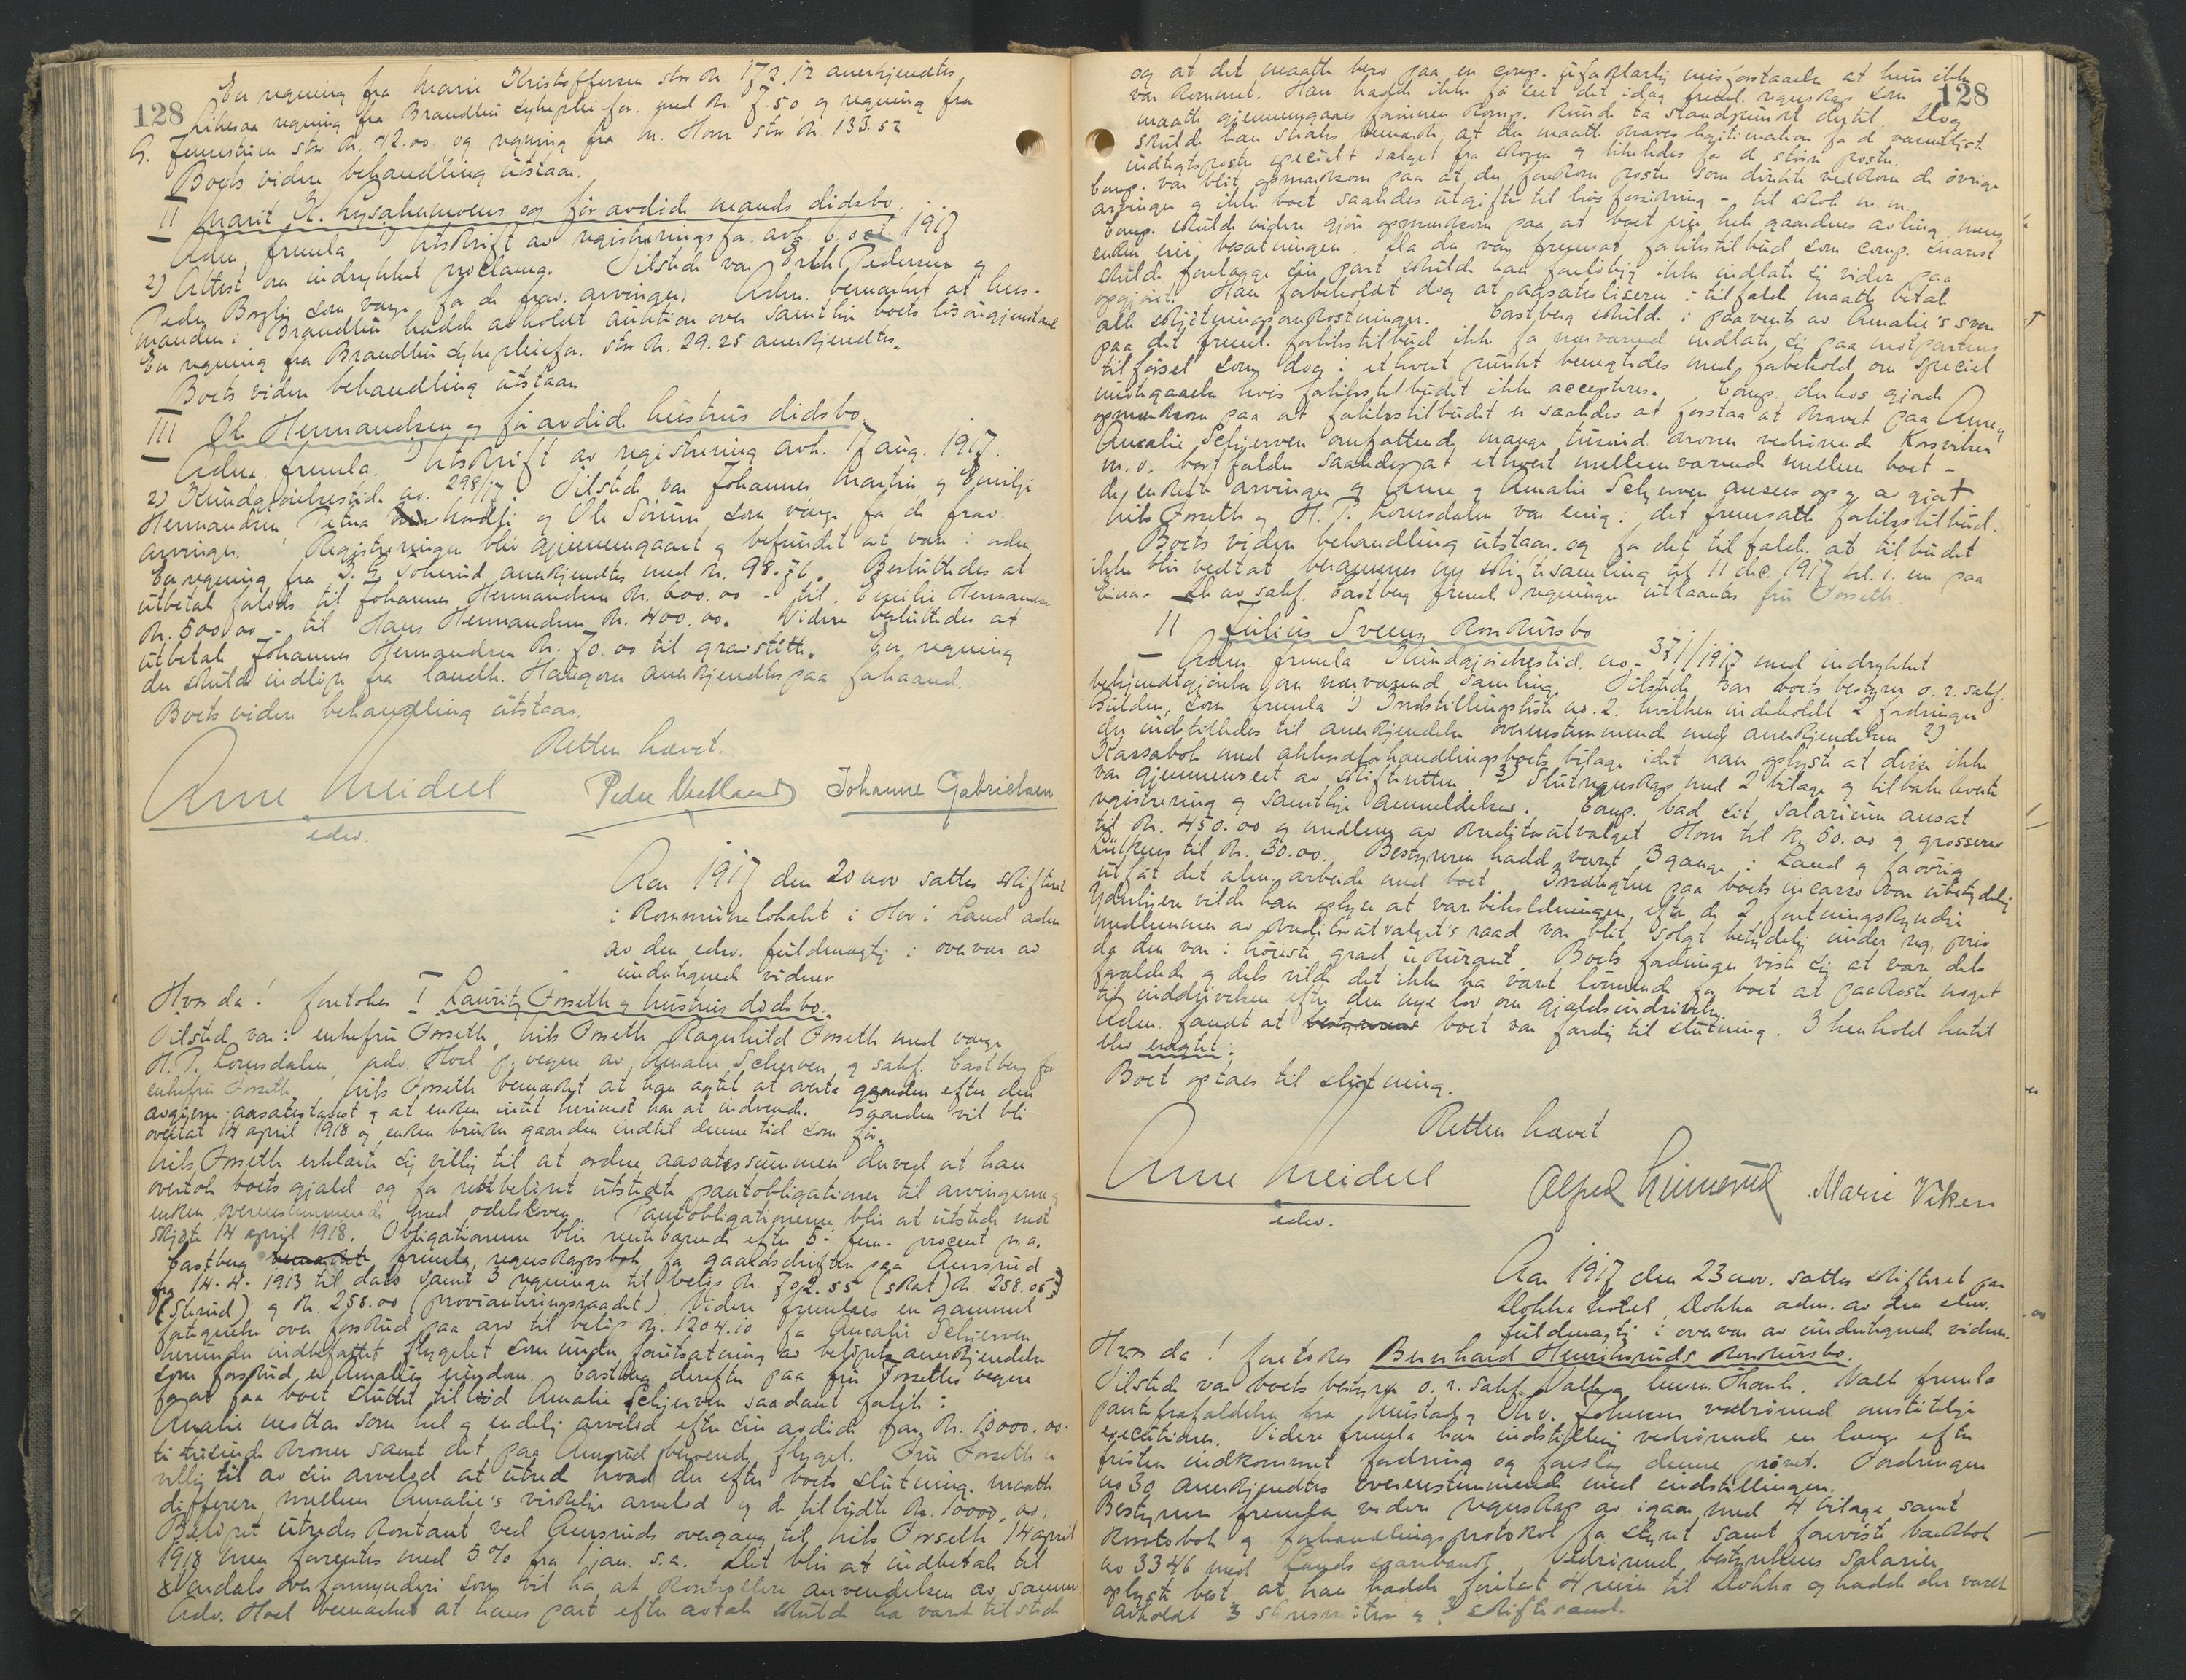 128
En regning fra Marie Kristoffersen stor kr. 172.12 anerkjendtes
Likesaa regning fra Brandbu sykepleiefor. med kr. 7.50 og regning fra
G. stor kr. 42.00 og regning fra M. Horn stor kr. 133.52
Boets videre behandling utstaar.
II Marit K. og før avdøde mands dødsbo.
Adm. fremla 1) Utskrift av registreringsfor. avh. 6 oct 1917
2) Attest om indrykket proclama. Tilstede var Pedersen og
Peder som verge for de frav. arvinger. Adm. bemerket at lens-
manden i Brandbu hadde avholdt auktion over samtlige boets løsøregjenstande
En regning fra Brandbu sykepleiefor. stor kr. 29.25 anerkjendtes.
Boets videre behandling utstaar
III Ole Hermandsen og før avdøde hustrus dødsbo
Adm. fremla 1) Utskrift av registrering avh. 17 aug. 1917.
2) Kundgjørelsestid. no. 298/17. Tilstede var Johannes Martin og Emilje
Hermandsen, Petra og Ole Sørum som verge for de frav.
arvinger. Registreringen blev gjennemgaaet og befundet at være i orden
En regning fra anerkjendtes med kr. 98.76. Besluttedes at
utbetale forlods til Johannes Hermandsen kr. 600.00 - til Emilie Hermandsen
kr. 500.00 - til Hans Hermandsen kr. 400.00. Videre besluttedes at
utbetale Johannes Hermandsen kr. 70.00 til gravstøtte. En regning
der skulde indløpe fra landh. Haugom anerkjendtes paa forhaand.
Boets videre behandling utstaar.
Retten hævet.
Arne Meidell
edsv.
Johanne Gabrielsen
Aar 1917 den 20 nov sattes skifteret
i Kommunelokalet i Hov i Land adm
av den edsv. fuldmægtig i overvær av
undertegnede vidner
Hvor da! foretokes I Lauritz Forseth og hustrus dødsbo.
Tilstede var: enkefru Forseth, Nils Forseth, Ragnhild Forseth med verge
H. P. Lomsdalen, adv. Hoel p. vegne av Amalie Schjerven og sakf. Castberg for
enkefru Forseth. Nils Forseth bemerket at han agtet at overta gaarden efter den
avgivne aasætestakst og at enken intet herimot har at indvende. Gaarden vil bli
overtat 14 april 1918 og enken bruker gaarden indtil denne tid som før.
Nils Forseth erklærte sig villig til at ordne aasætessummen derved at han
overtok boets gjæld og for restbeløpet utstedte pantobligationer til arvingerne og
enken overensstemmende med odelsloven. Pantobligationerne blir at utstede mot
skjøte 14 april 1918. Obligationerne blir rentebærende efter 5 - fem - procent p.a.
Castberg bemerket fremla regnskapsbok for gaardsdriften paa Amsrud
fra 14-4-1913 til dato samt 3 regninger til beløp kr. 702.55 (skat) kr. 258.05
og kr. 258.00 (provianteringsraadet). Videre fremlaes en gammel
fortegnelse over forskud paa arv til beløp kr. 1204.10 for Amalie Schjerven
herunder indbefattet flygelet som under forutsætning av beløpets anerkjendelse
som forskud er Amalies eiendom. Castberg derefter paa fru Forseths vegne
for at faa boet sluttet tilbød Amalie Schjerven saadant forlik:
Amalie mottar som hel og endelig arvelod efter sin avdøde far kr. 10000.00.
ti tusinde kroner samt det paa Amsrud beroende flygel. Fru Forseth er
villig til av sin arvelod at utrede hvad der efter boets slutning maatte
differere mellem Amalie's virkelige arvelod og de tilbudte kr. 10000.00.
Beløpet utredes kontant ved Amsruds overgang til Nils Forseth 14 april
1918 men forrentes med 5% fra 1 jan. s.a. Det blir at indbetale til
Vardals overformynderi som vil ha at kontrollere anvendelsen av samme
Adv. Hoel bemerket at hans part efter avtale skulde ha været tilstede
128
og at det maatte bero paa en comp. uforklarlig misforstaaelse at hun ikke
var kommet. Han hadde ikke før set det idag freml. regnskap som
maatte gjennemgaaes forinden komp. kunde ta standpunkt dertil. Dog
skulde han straks bemerke at der maatte kræves legitimation for de væsentligste
indtægtsposter specielt salget fra skogen og likeledes for de større poster.
Comp. var blit opmerksom paa at der forekom poster som direkte vedkom de øvrige
arvinger og ikke boet saaledes utgifter til livsforsikring - til skole m.m.
Comp. skulde videre gjøre opmerksom paa at boet eier hele gaardens avling mens
enken eier besætningen. Da der var fremsat forlikstilbud som comp. snarest
skulde forelægge sin part skulde han foreløbig ikke indlate sig videre paa
opgjøret. Han forbeholdt dog at aasætesløseren i tilfælde maatte betale
alle skiftningsomkostninger. Castberg skulde i paavente av Amalie's svar
paa det freml. forlikstilbud ikke for nærværende indlate sig paa motpartens
tilførsel som dog i ethvert punkt benegtedes med forbehold om speciel
imøtegaaelse hvis forlikstilbudet ikke accepteres. Comp. derhos gjorde
opmerksom paa at forlikstilbudet er saaledes at forstaa at kravet paa Arne og
Amalie Schjerven omfattende mange tusind kroner vedrørende
m.v. bortfalder saaledes at ethvert mellemværende mellem boet -
de enkelte arvinger og Arne og Amalie Schjerven ansees op og avgjort
Nils Forseth og H. P. Lomsdalen var enig i det fremsatte forlikstilbud.
Boets videre behandling utstaar og for det tilfælde at tilbudet
ikke blir vedtat berammes ny skiftesamling til 11 dec. 1917 kl. 1 em paa
Eina. De av sakf. Castberg freml. regninger utlaantes fru Forseth
II Julius Sveens konkursbo
Adm. fremla Kundgjørelsestid. no. 371/1917 med indrykket
bekjendtgjørelse om nærværende samling. Tilstede var boets bestyrer o.r.sakf.
som fremla 1) Indstillingsliste no. 2. hvilken indeholdt 2 fordringer
der indstilledes til anerkjendelse overensstemmende med anerkjendelsen 2)
Kassabok med akkordforhandlingsboets bilage idet han oplyste at disse ikke
var gjennemseet av skifteretten 3) Slutregnskap med 2 bilage og tilbakeleverte
registrering og samtlige anmeldelser. Comp. bad sit salarium ansat
til kr. 450.00 og medlem av kreditorutvalget Horn til kr. 50.00 og grosserer
til kr. 30.00. Bestyreren hadde været 3 gange i Land og forøvrig
utført det alm. arbeide med boet. Indtægten paa boets incasso var ubetydelig
Ydерligere vilde han oplyse at varebeholdningen, efter de 2 forretningskyndige
medlemmer av kreditorutvalget's raad var blit solgt betydelig under reg. pris
da den var i høieste grad ukurant. Boets fordringer viste sig at være dels
forældede og dels vilde det ikke ha været lønnende for boet at paakoste noget
til inddrivelsen efter den nye lov om gjældsinddrivelse.
Adm. fandt at bestyreren boet var færdig til slutning. I henhold hertil
blev eragtet:
Boet optaes til slutning.
Retten hævet
Arne Meidell
edsv.
Alfred Marie Viken
Aar 1917 den 23 nov. sattes skifteret paa
Dokka hotel, Dokka adm. av den edsv.
fuldmægtig i overvær av undertegnede vidner.
Hvor da! foretokes Bernhard Henriksruds konkursbo.
Tilstede var boets bestyrer o.r.sakf. Valle og Thomle. Valle fremla
pantefrafaldelse fra Mustad og Chr. Johnsen vedrørende omstøtelige
executioner. Videre fremla han indstilling vedrørende en længe efter
fristen indkommet fordring og foreslog denne prøvet. Fordringen
no 30 anerkjendtes overensstemmende med indstillingen.
Bestyreren fremla videre regnskap av igaar med 4 bilage samt
kontobok og forhandlingsprotokol for styret samt foreviste bankbok
no 3346 med Lands sparebank. Vedrørende bestyrelsens salarier
oplyste best. at han hadde foretat 4 reiser til Dokka og hadde der været
avholdt 3 og 3 skiftesaml.